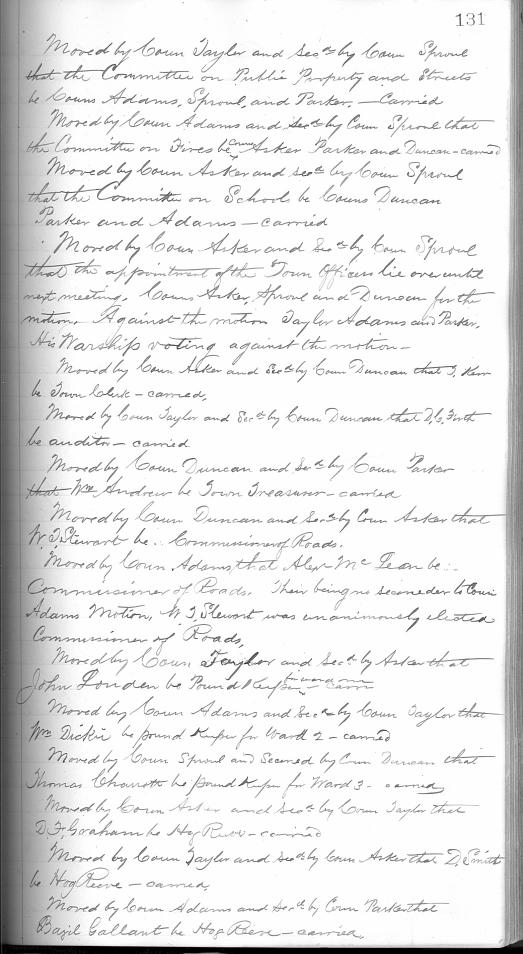 131
Moved by Coun Taylor and Secd by Coun Sproul
that the Committee on Public Property and Streets
be Couns Adams, Sproul, and Parker. — Carried
Moved by Coun Adams and Secd by Coun Sproul that
the Committee on Fires be Couns Asker Parker and Duncan - carried
Moved by Coun Asker and Secd by Coun Sproul
that the Committee on Schools be Couns Duncan
Parker and Adams — carried
Moved by Coun Asker and Secd by Coun Sproul
that the appointment of the Town Officers lie over until
next meeting. Couns Asker, Sproul and Duncan for the
motion. Against the motion Taylor Adams and Parker.
His Warship voting against the motion —
Moved by Coun Asker and Secd by Coun Duncan that T. Kerr
be Town Clerk — carried,
Moved by Coun Taylor and Secd by Coun Duncan that D.C. Firth
be auditor — carried
Moved by Coun Duncan and Secd by Coun Parker
that Wm Andrew be Town Treasurer — carried
Moved by Coun Duncan and Secd by Coun Asker that
W. T. Stewart be Commissioner of Roads.
Moved by Coun. Adams, that Alex McLean be
Commissioner of Roads. Their being no seconeder to Coun
Adams Motion, W. T. Stewart was unanimously elected
Commissioner of Roads,
Moved by Coun Taylor and Secd by Asker that
John Louden be Pound Keeper for ward one — carr
Moved by Coun Adams and Secd by Coun Taylor that
Wm Dickie be pound Keeper for Ward 2 — carried
Moved by Coun Sproul and Seconed by Coun Duncan that
Thomas be pound Keeper for Ward 3 - carried
Moved by Coun Asker and Secd by Coun Taylor that
D. F. Graham be Hog Reeve — carried
Moved by Coun Taylor and Secd by Coun Asker that D. Smith
be Hog Reeve — carried,
Moved by Coun Adams and Secd by Coun Parker that
Bazil Gallant be Hog Reeve — carried,